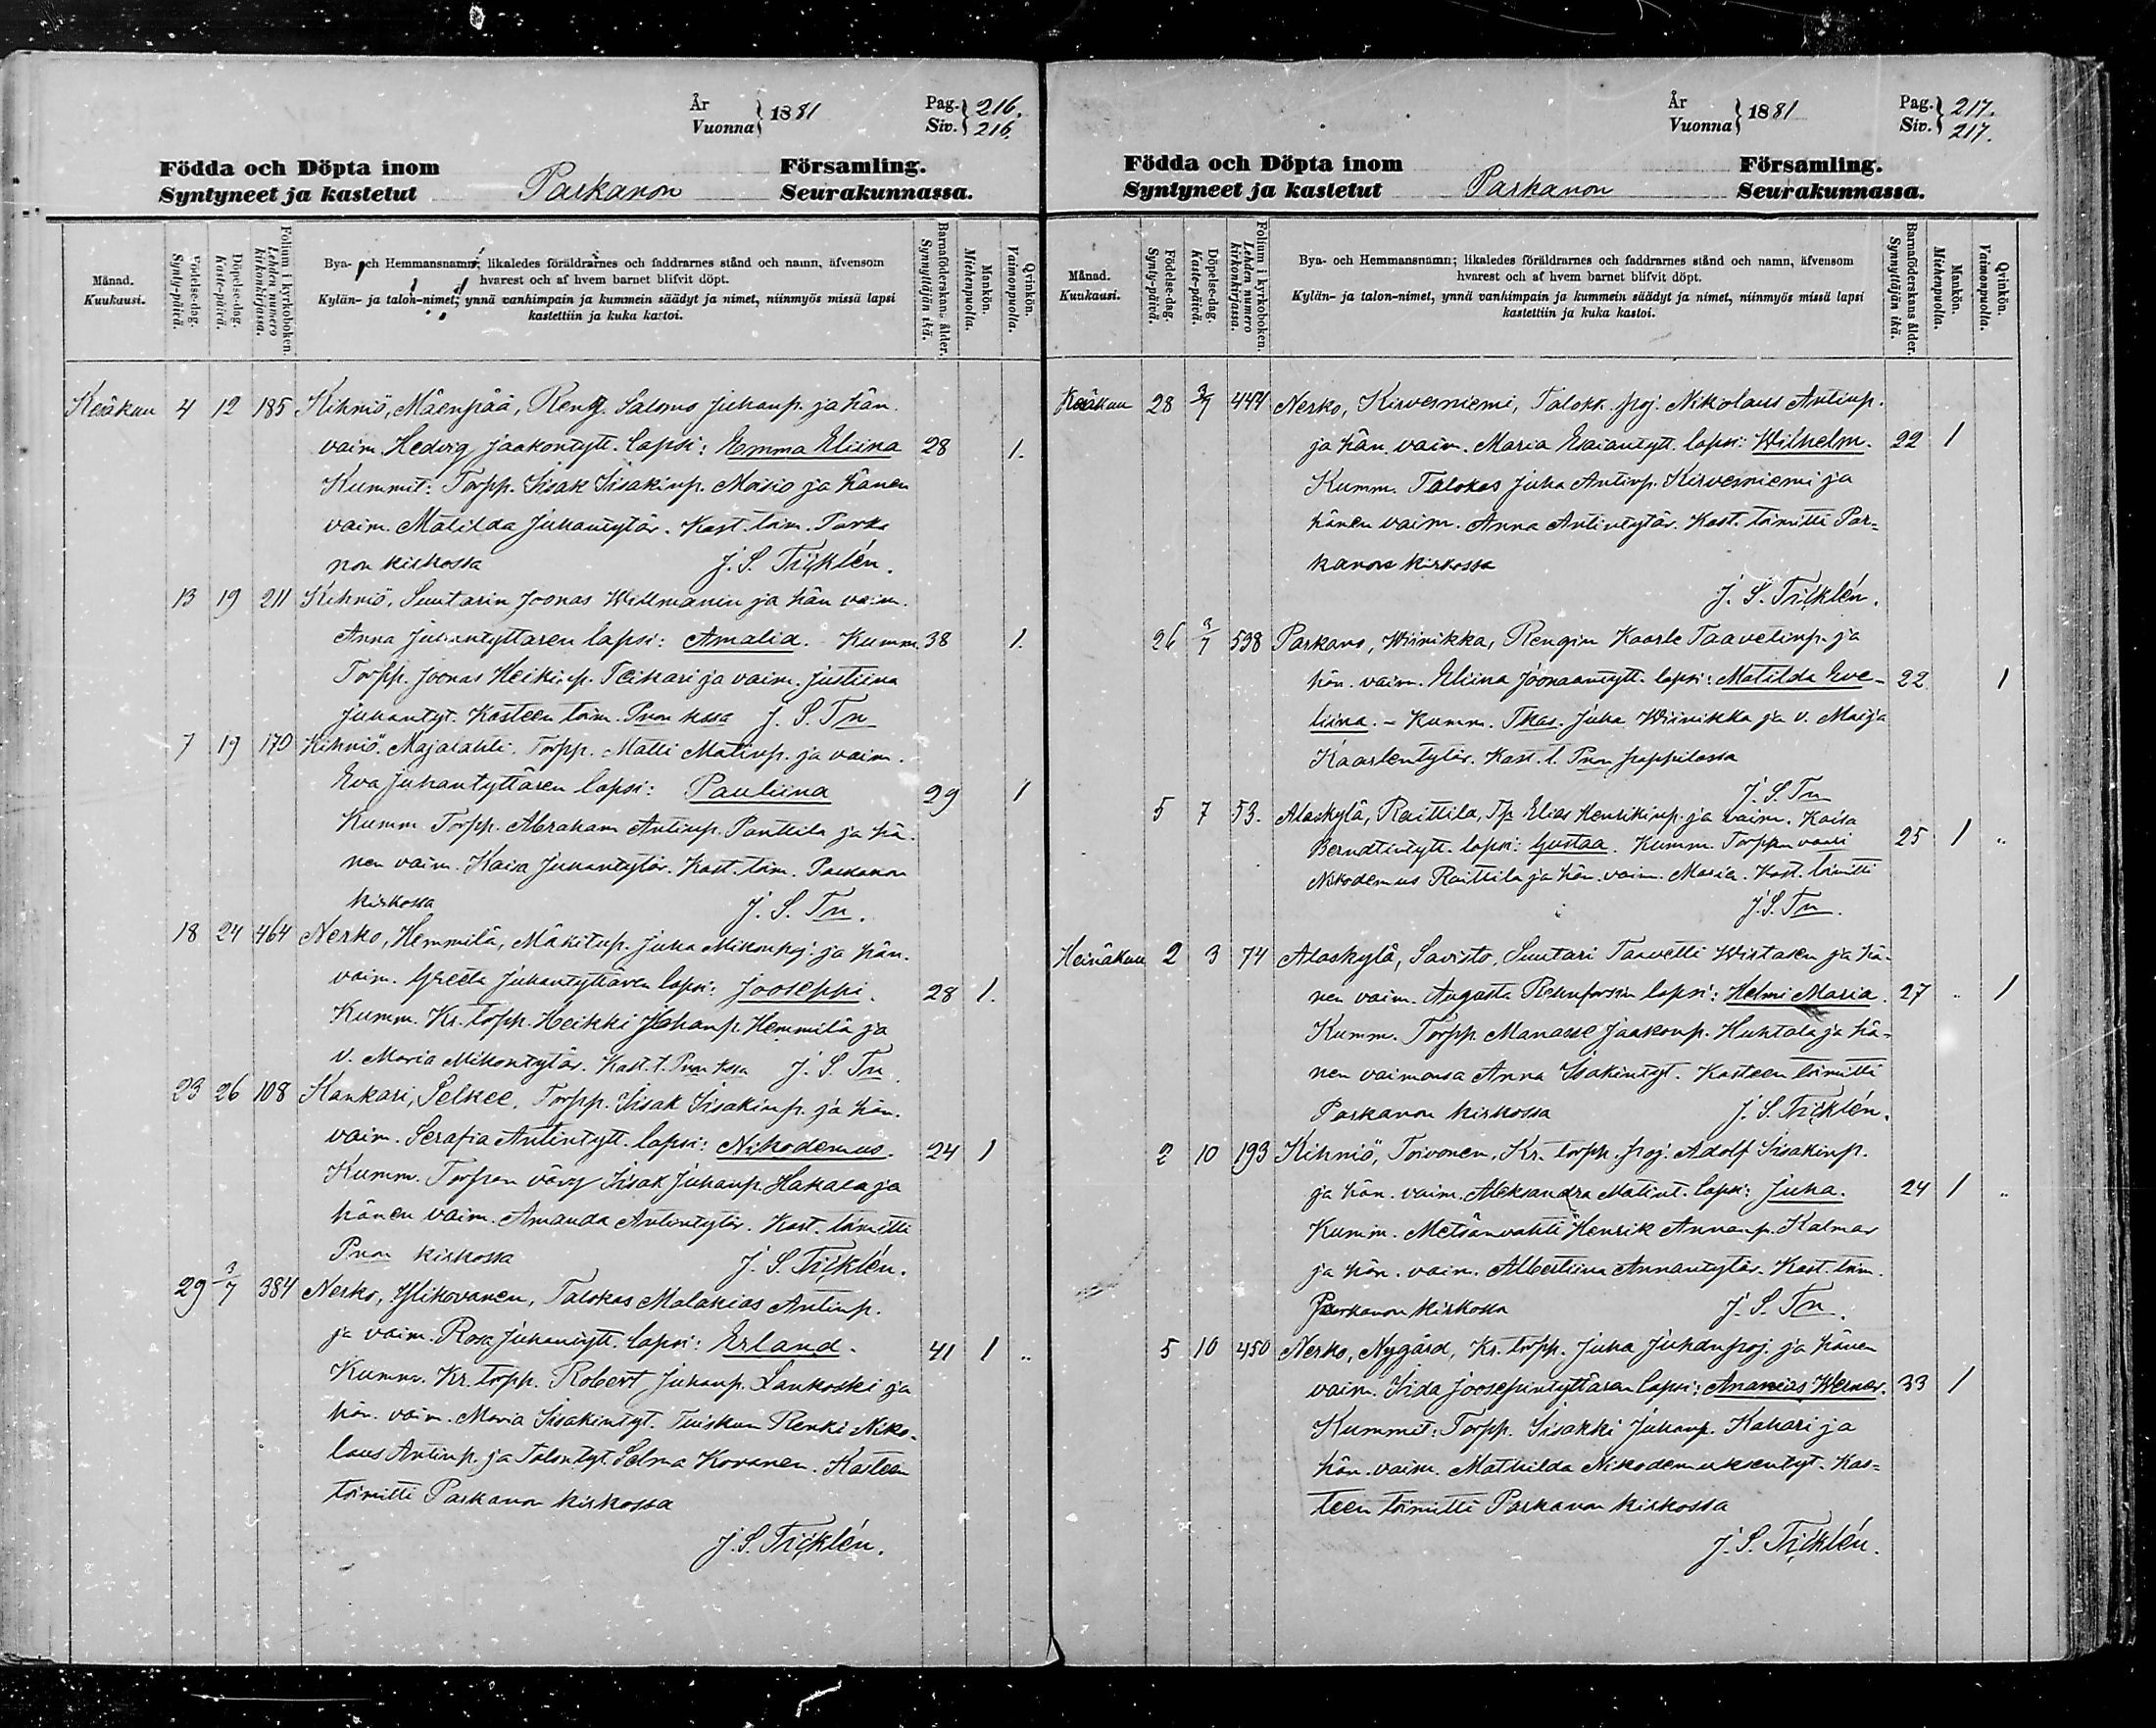 År
Vuonna } 1881
Pag. } 216.
Siv. } 216.
Födda och Döpta inom Församling.
Syntyneet ja kastetut Parkanon Seurakunnassa.
Månad.
Kuukausi.
Födelse-dag.
Synty-päivä.
Döpelse-dag.
Kaste-päivä.
Folium i kyrkoboken.
Lehden numero kirkonkirjassa.
Bya- och Hemmansnamn; likaledes föräldrarnes och faddrarnes stånd och namn, äfvensom
hvarest och af hvem barnet blifvit döpt.
Kylän- ja talon-nimet, ynnä vanhimpain ja kummein säädyt ja nimet, niinmyös missä lapsi
kastettiin ja kuka kastoi.
Barnaföderskans ålder.
Synnyttäjän ikä.
Mankön.
Miehenpuolia.
Qvinkön.
Vaimonpuolia.
Kesäkuu 4 12 185 Kihniö, Mäenpää, Reng. Salomo Juhanp. ja hän.
vaim. Hedvig Jaakontytt. lapsi: Emma Eliina 28 1.
Kummit: Torpp. Iisak Iisakinp. Moisio ja hänen
vaim. Matilda Juhantytär. Kast. toim. Parka
non kirkossa J. S. Tricklén.
13 19 211 Kihniö, Suutarin Joonas Willmanin ja hän vaim.
Anna Juhantyttären lapsi: Amalia. Kumm. 38 1.
Torpp. Joonas Heikinp. Teikari ja vaim. Justiina
Juhantyt. Kasteen toim. Pnon kssa J. S. Tn
7 19 170 Kihniö. Majalahti. Torpp. Matti Matinp. ja vaim.
Eva Juhantyttären lapsi: Pauliina 29 1
Kumm. Torpp. Abraham Antinp. Panttila ja hä-
nen vaim. Kaisa Juhantytär. Kast. toim. Parkanon
kirkossa J. S. Tn.
18 24 464 Nerko, Hemmilä, Mäkitup. Juha Mikonpoj. ja hän.
vaim. Greeta Juhantyttären lapsi: Jooseppi. 28 1.
Kumm. Kr. torpp. Heikki Johanp. Hemmilä ja
v. Maria Mikontytär. Kast. t. Pnon kssa J. S. Tn
23 26 108 Kankari, Selkee. Torpp. Iisak Iisakinp. ja hän.
vaim. Serafia Antintytt. lapsi: Nikodemus. 24 1
Kumm. Torpan vävy Iisak Juhanp. Hakala ja
hänen vaim. Amanda Antintytär. Kast. toimitti
Pnon kirkossa J. S. Tricklén.
29 3/7 384 Nerko, Ylikovanen, Talokas Malakias Antinp.
ja vaim. Rosa Juhantytt. lapsi: Erland. 41 1 „
Kumm. Kr. torpp. Robert Juhanp. Lankoski ja
hän. vaim. Maria Iisakintyt. Tuiskun Renki Niko-
laus Antinp. ja Talontyt. Selma Kovanen. Kasteen
toimitti Parkanon kirkossa
J. S. Tricklén.
År
Vuonna } 1881
Pag. } 217.
Siv. } 217.
Födda och Döpta inom Församling.
Syntyneet ja kastetut Parkanon Seurakunnassa.
Månad.
Kuukausi.
Födelse-dag.
Synty-päivä.
Döpelse-dag.
Kaste-päivä.
Folium i kyrkoboken.
Lehden numero kirkonkirjassa.
Bya- och Hemmansnamn; likaledes föräldrarnes och faddrarnes stånd och namn, äfvensom
hvarest och af hvem barnet blifvit döpt.
Kylän- ja talon-nimet, ynnä vanhimpain ja kummein säädyt ja nimet, niinmyös missä lapsi
kastettiin ja kuka kastoi.
Barnaföderskans ålder.
Synnyttäjän ikä.
Mankön.
Miehenpuolia.
Qvinkön.
Vaimonpuolia.
Kesäkuu 28 3/7 Nerko, Kirvesniemi, Talokk. poj. Nikolaus Antinp.
ja hän. vaim. Maria Esaiantytt. lapsi: Wilhelm. 22 1
Kumm. Talokas Juha Antinp. Kirvesniemi ja
hänen vaim. Anna Antintytär. Kast. toimitti Par=
kanon kirkossa
J. S. Tricklén.
26 3/7 538 Parkano, Wiinikka, Rengin Kaarle Taavetinp. ja
hän. vaim. Eliina Joonaantytt. lapsi: Matilda Eve- 22 1
liina. - Kumm. Tkas. Juha Wiinikka ja v. Maija
Kaarlentytär. Kast. t. Pnon pappilassa
J. S. Tn
5 7 53. Alaskylä, Raittila, Tp. Elias Henrikinp. ja vaim. Kaisa
Berndtintytt. lapsi: Gustaa. Kumm. Torpan vaari 25 1 „
Nikodemus Raittila ja hän. vaim. Maria. Kast. toimitti
J. S. Tn.
Heinäkuu 2 3 74 Alaskylä, Savisto, Suutari Taavetti Wirtasen ja hä-
nen vaim. Augusta Rehnforsin lapsi: Helmi Maria. 27 „ 1
Kumm. Torpp. Manasse Jaakonp. Huhtala ja hä-
nen vaimonsa Anna Isakintyt. Kasteen toimitti
Parkanon kirkossa J. S. Tricklén.
2 10 193 Kihniö, Toivonen, Kr. torpp. poj. Adolf Iisakinp.
ja hän. vaim. Aleksandra Matint. lapsi: Juha. 24 1 „
Kumm. Metsänvahti Henrik Annanp. Kalmar
ja hän. vaim. Albertiina Annantytär. Kast. toim.
Parkanon kirkossa J. S. Tn.
5 10 450 Nerko, Nygård, Kr. torpp. Juha Juhanpoj. ja hänen
vaim. Iida Joosepintyttären lapsi: Ananias Werner. 33 1
Kummit: Torpp. Iisakki Juhanp. Kahari ja
hän. vaim. Mathilda Nikodemuksentyt. Kas=
teen toimitti Parkanon kirkossa
J. S. Tricklén.